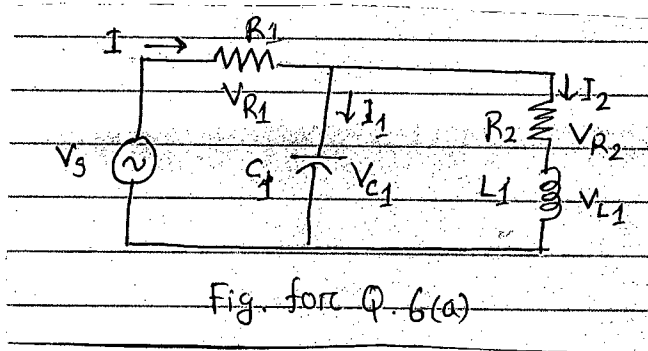 I
R1
VR1
I1
I2
R2
VR2
Vs
C1
VC1
L1
VL1
Fig. for Q. 6(a)